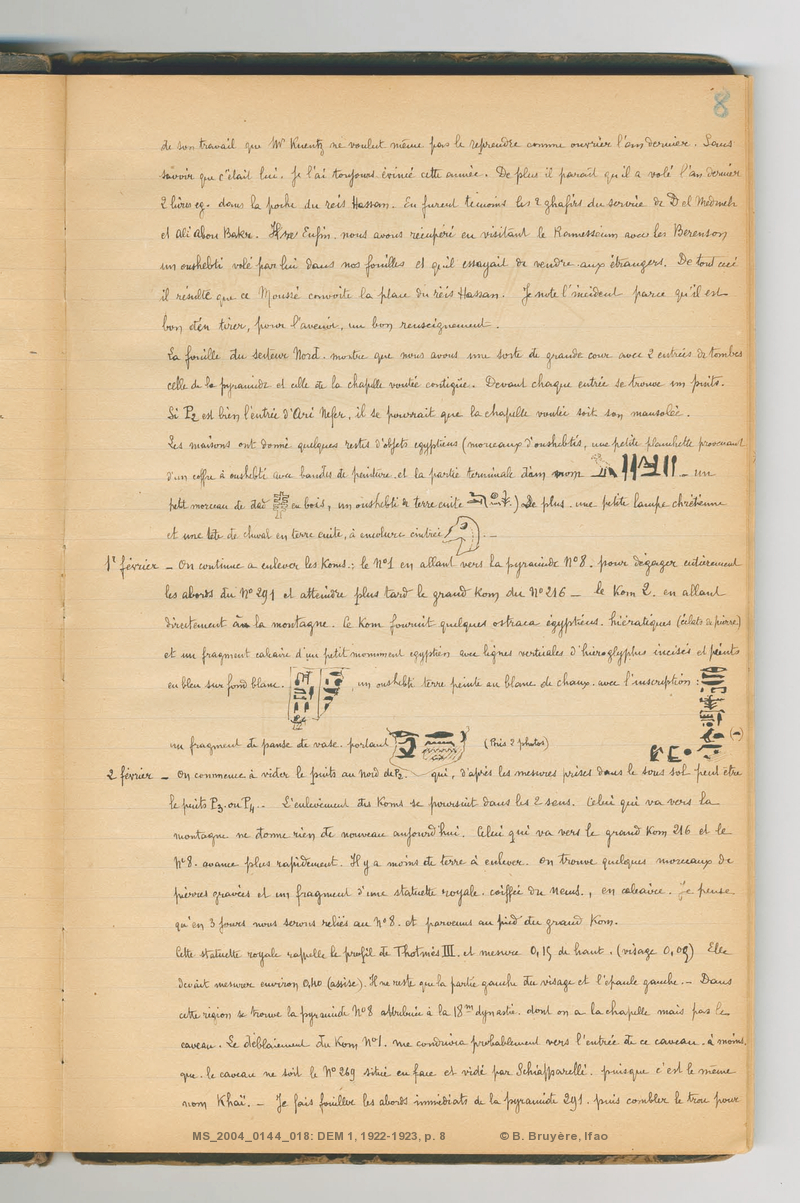 8
de son travail que Mr Kuentz ne voulut même pas le reprendre comme ouvrier l'an dernier. Sans
savoir que c'était lui. Je l'ai toujours évincé cette année. De plus il paraît qu'il a volé l'an dernier
2 livres eg. dans la poche du reis Hassan. En furent témoins les 2 ghafirs du service de D el Médineh
et Ali Abou Bakr. Enfin. nous avons récupéré en visitant le Ramesseum avec les Berenson
un oushebti volé par lui dans nos fouilles et qu'il essayait de vendre aux étrangers. De tout ceci
il résulte que ce Moussé convoite la place du reis Hassan. Je note l'incident parce qu'il est
bon d'en tirer, pour l'avenir, un bon renseignement.
La fouille du secteur Nord. montre que nous avons une sorte de grande cour avec 2 entrées de tombes
celle de la pyramide et celle de la chapelle voutée contigüe. Devant chaque entrée se trouve un puits.
Si P2 est bien l'entrée d'Ari Nefer, il se pourrait que la chapelle voutée soit son mausolée.
Les maisons ont donné quelques restes d'objets egyptiens (morceaux d'oushebtis, une petite planchette provenant
d'un coffre à oushebti avec bandes de peinture. et la partie terminale d'un nom — un
petit morceau de dad en bois, un oushebti de terre cuite ) De plus. une petite lampe chrétienne
et une tête de cheval en terre cuite, à encolure cintrée —
1r février — On continue a enlever les Koms : le No1 en allant vers la pyramide No 8. pour dégager entièrement
les abords du No 291 et atteindre plus tard le grand Kom du No 216 — le Kom 2. en allant
directement à la montagne. Le Kom fournit quelques ostraca égyptiens. hiératiques (éclats de pierre)
et un fragment calcaire d'un petit monument egyptien avec lignes verticales d'hiéroglyphes incisés et peints
en bleu sur fond blanc. , un oushebti terre peinte au blanc de chaux. avec l'inscription :
un fragment de panse de vase. portant (Pris 2 photos)
2 février — On commence à vider le puits au nord de P2. qui, d'après les mesures prises dans le sous sol peut être
le puits P3. ou P4.. L'enlèvement des Koms se poursuit dans les 2 sens. Celui qui va vers la
montagne ne donne rien de nouveau aujourd'hui. Celui qui va vers le grand Kom 216 et le
No 8. avance plus rapidement. Il y a moins de terre à enlever. On trouve quelques morceaux de
pierres gravées et un fragment d'une statuette royale. coiffée du Nems., en calcaire. Je pense
qu'en 3 jours nous serons reliés au No 8. et parvenus au pied du grand Kom.
Cette statuette royale rappelle le profil de Thotmès III. et mesure 0,15 de haut. (visage 0,05) Elle
devait mesurer environ 0,40 (assise). Il ne reste que la partie gauche du visage et l'épaule gauche. — Dans
cette région se trouve la pyramide No 8 attribuée à la 18me dynastie. dont on a la chapelle mais pas le
caveau. Le déblaiement du Kom No 1. me conduira probablement vers l'entrée de ce caveau. à moins.
que. le caveau ne soit le No 269 situé en face et vidé par Schiapparelli. puisque c'est le même
nom Khaï. — Je fais fouiller les abords immédiats de la pyramide 291. puis combler le trou pour
MS_2004_0144_018: DEM 1, 1922-1923, p. 8 © B. Bruyère, Ifao